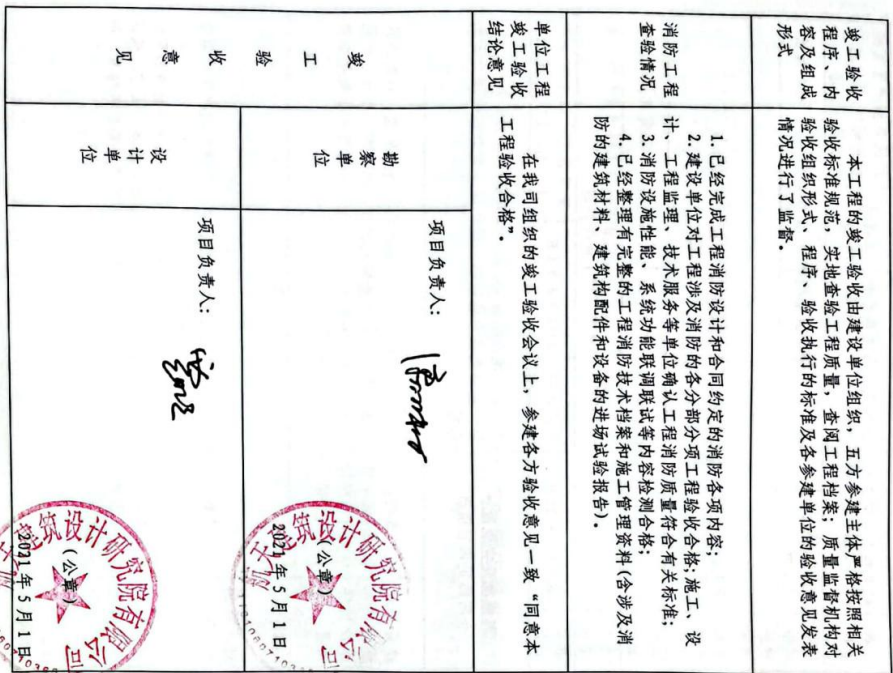 竣工验收
程序、内
容及组成
形式
本工程的竣工验收由建设单位组织，五方参建主体严格按照相关
验收标准规范，实地查验工程质量，查阅工程档案；质量监督机构对
验收组织形式、程序、验收执行的标准及各参建单位的验收意见发表
情况进行了监督。
消防工程
查验情况
1.已经完成工程消防设计和合同约定的消防各项内容；
2.建设单位对工程涉及消防的各分部分项工程验收合格；施工、设
计、工程监理、技术服务等单位确认工程消防质量符合有关标准；
3.消防设施性能、系统功能联调联试等内容检测合格；
4.已经整理有完整的工程消防技术档案和施工管理资料(含涉及消
防的建筑材料、建筑构配件和设备的进场试验报告)。
单位工程
竣工验收
结论意见
在我司组织的竣工验收会议上，参建各方验收意见一致“同意本
工程验收合格”。
竣工验收意见
勘察单位
项目负责人：
建筑设计研究院有限公司
(公章)
2021年5月1日
设计单位
项目负责人：
建筑设计研究院有限公司
(公章)
2021年5月1日